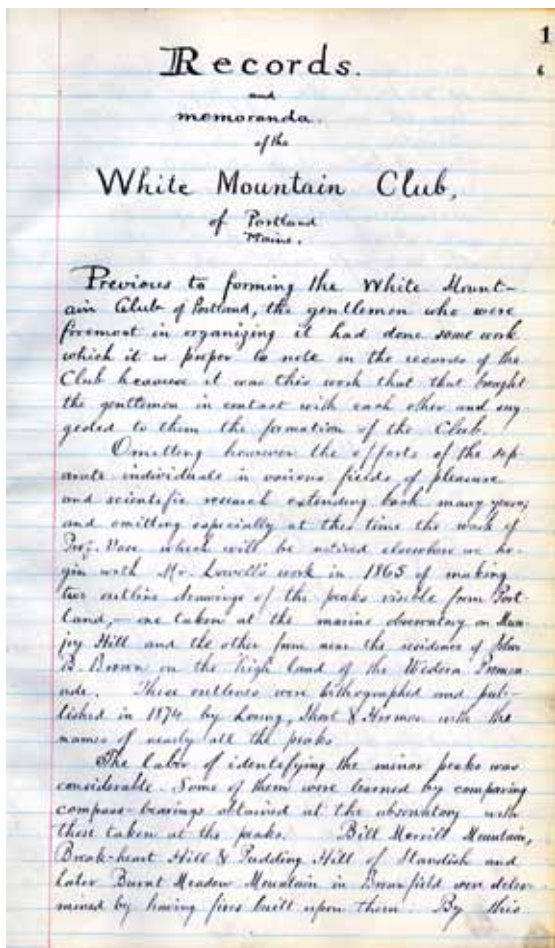 1
6
Records.
and
memoranda.
of the
White Mountain Club,
of Portland
Maine.
Previous to forming the White Mount-
ain Club of Portland, the gentlemen who were
foremost in organizing it had done some work
which it is proper to note in the records of the
Club because it was this work that that brought
the gentlemen in contact with each other and sug
gested to them the formation of the Club.
Omitting however the efforts of the sep-
arate individuals in various fields of pleasure
and scientific research extending back many years;
and omitting especially at this time the work of
Prof. Vose which will be noticed elsewhere we be-
gin with Mr. Lowell's work in 1865 of making
two outline drawings of the peaks visible from Port-
land,— one taken at the marine observatory on Mun
joy Hill and the other from near the residence of John
B. Brown on the high land of the Western Promen
ade. These outlines were lithographed and pub-
lished in 1874 by Loring, Short & Harmon with the
names of nearly all the peaks.
The labor of identifying the minor peaks was
considerable. Some of them were learned by comparing
compass-bearings obtained at the observatory with
those taken at the peaks. Bill Merrill Mountain,
Break-heart Hill & Pudding Hill of Standish and
later Burnt Meadow Mountain in Brownfield were deter-
mined by having fires built upon them. By this